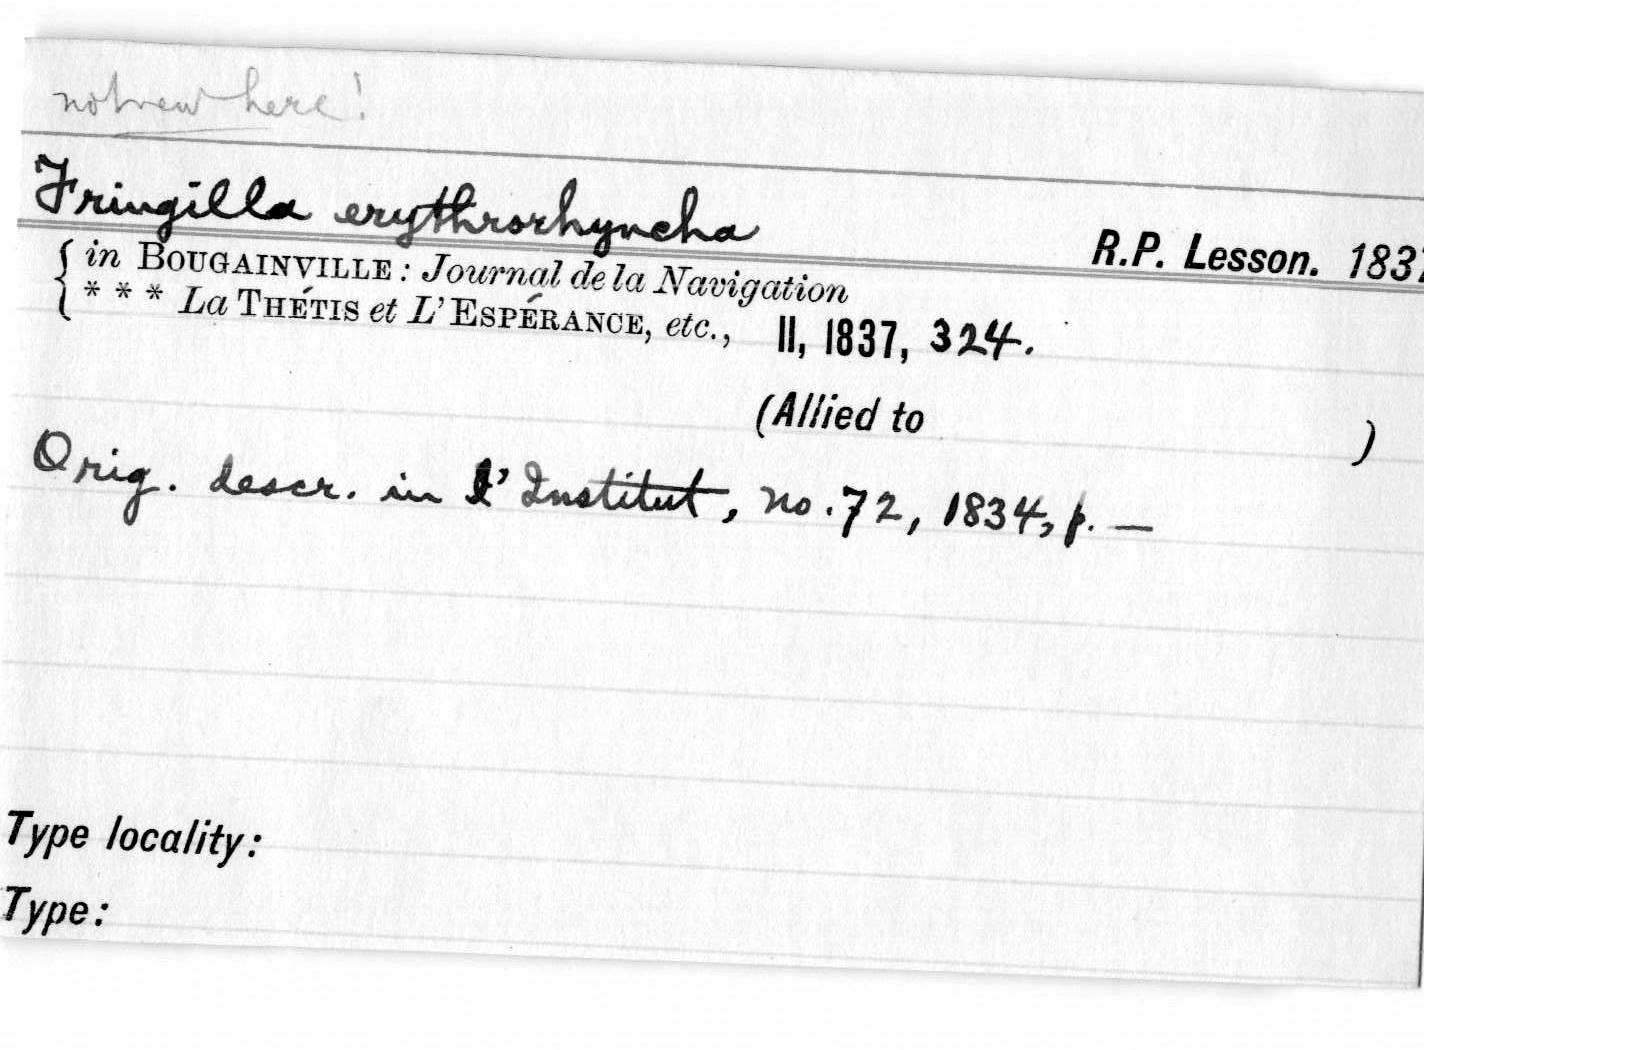 not new here!
Fringilla erythrorhyncha
R.P. Lesson. 1837
{ in BOUGAINVILLE: Journal de la Navigation
* * * La THÉTIS et L'ESPÉRANCE, etc., II, 1837, 324.
(Allied to )
Orig. descr. in l'Institut, no. 72, 1834, p. —
Type locality:
Type: